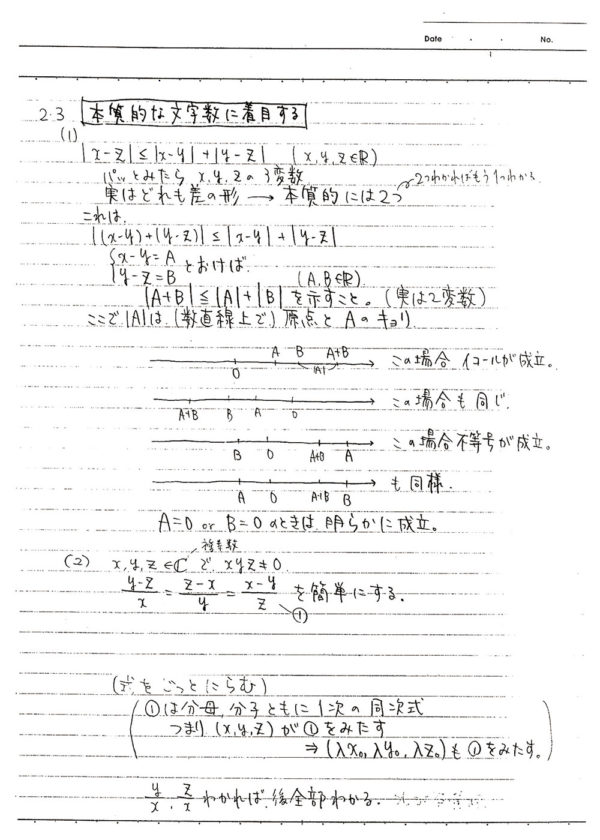 Date ・ ・ No.
2.3 本質的な文字数に着目する
(1)
|x-z| ≤ |x-y| + |y-z| (x,y,z∈ℝ)
パッとみたら x,y,z の3変数
実はどれも差の形 → 本質的には2つ 2つわかればもう1つわかる
これは
|(x-y)+(y-z)| ≤ |x-y| + |y-z|
{x-y=A
{y-z=B とおけば (A,B∈ℝ)
|A+B| ≤ |A|+|B| を示すこと。(実は2変数)
ここで |A|は (数直線上で) 原点とAのキョリ
0 A B A+B |A| この場合 イコールが成立。
A+B B A 0 この場合も同じ.
B 0 A+B A この場合不等号が成立。
A 0 A+B B も同様.
A=0 or B=0 のときは 明らかに成立。
(2) x,y,z∈ℂ で xyz≠0 複素数
(y-z)/x = (z-x)/y = (x-y)/z を簡単にする. ①
(式をごっとにらむ)
(①は分母,分子ともに1次の同次式
つまり (x,y,z)が①をみたす
⇒ (λx₀,λy₀,λz₀)も①をみたす。)
y/x, z/x わかれば,後全部わかる.